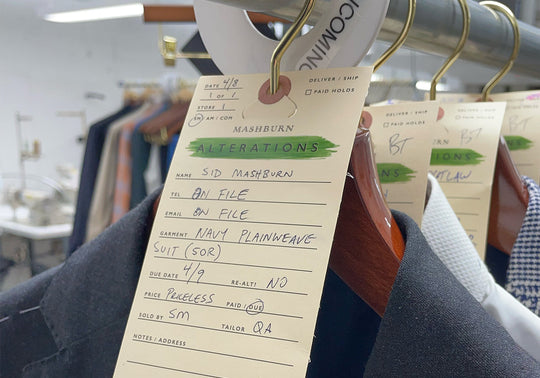 COMING
DATE 4/8
1 OF 1
STORE 1
SM / AM / COM
DELIVER / SHIP
PAID HOLDS
MASHBURN
ALTERATIONS
NAME SID MASHBURN
TEL ON FILE
EMAIL ON FILE
GARMENT NAVY PLAINWEAVE
SUIT (50R)
DUE DATE 4/9 RE-ALT? NO
PRICE PRICELESS PAID / DUE
SOLD BY SM TAILOR QA
NOTES / ADDRESS
DELIVER / SHIP
PAID HOLDS
BT
DELIVER / SHIP
BT
IONS